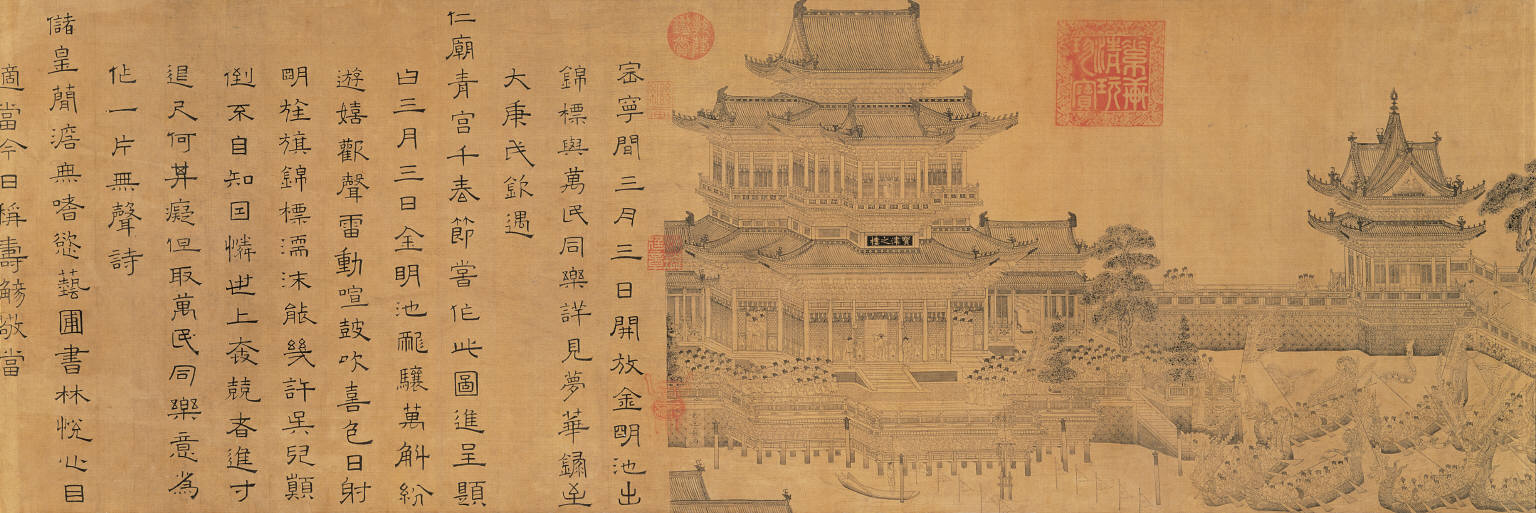 寶津之樓
崇寧間三月三日開放金明池出
錦標與萬民同樂詳見夢華錄至
大庚戌欽遇
仁廟青宮千春節嘗作此圖進呈題
曰三月三日金明池龍驤萬斛紛
遊嬉歡聲雷動喧鼓吹喜色日射
明旌旗錦標濡沫能幾許吳兒顛
倒不自知因憐世上奔競者進寸
退尺何其癡但取萬民同樂意為
作一片無聲詩
儲皇簡澹無嗜慾藝圃書林悅心目
適當今日稱壽觴敬當